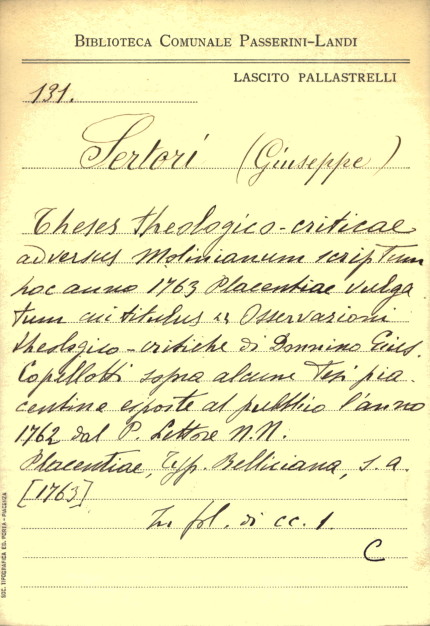 BIBLIOTECA COMUNALE PASSERINI-LANDI
LASCITO PALLASTRELLI
131.
Sertori (Giuseppe)
Theses theologico-criticae
adversus Molinianum scriptum
hoc anno 1763 Placentiae vulga
tum cui titulus Osservazioni
theologico-critiche di Donnino Gius.
Copellotti sopra alcune Tesi pia-
centine esposte al pubblico l'anno
1762 dal P. Lettore N.N.
Placentiae, Typ. Belliciana, s. a.
[1763]
In fol. di cc. 1.
C
SOC. TIPOGRAFICA ED. PORTA - PIACENZA